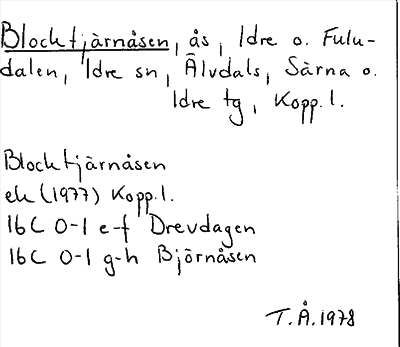 Blocktjärnåsen, ås, Idre o. Fulu-
dalen, Idre sn, Älvdals, Särna o.
Idre tg, Kopp. l.
Blocktjärnåsen
ek (1977) Kopp. l.
16C 0-1 e-f Drevdagen
16C 0-1 g-h Björnåsen
T.Å. 1978